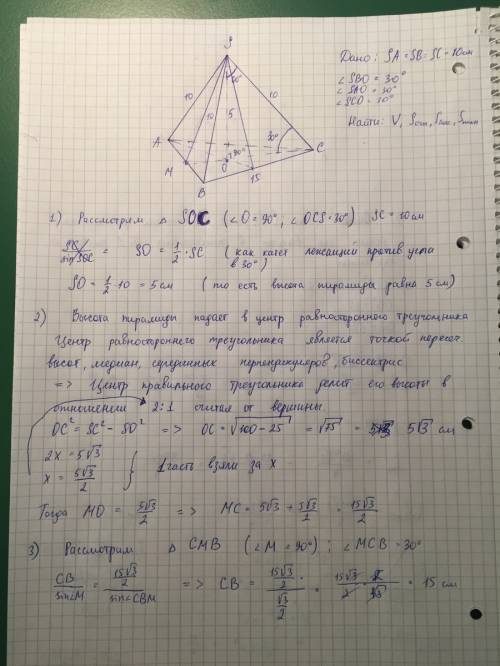 S
Дано: SA = SB = SC = 10см
∠SBO = 30°
∠SAO = 30°
∠SCO = 30°
Найти: V,
10
10
10
5
30°
A
M
B
O
15
C
1) Рассмотрим △ SOC (∠O = 90°, ∠OCS = 30°) SC = 10 см
SO = 1/2 · SC (как катет лежащий против угла
в 30°)
SO = 1/2 · 10 = 5 см (то есть высота пирамиды равна 5 см)
2) Высота пирамиды падает в центр равностороннего треугольника
Центр равностороннего треугольника является точкой пересеч.
высот, медиан, серединных перпендикуляров, биссектрис
=> Центр правильного треугольника делит его высоты в
отношении 2:1 считая от вершины
OC² = SC² − SO² => OC = √(100 − 25) = √75 = 5√3 см
2x = 5√3
x = 5√3/2
1 часть взяли за x
Тогда MO = 5√3/2 => MC = 5√3 + 5√3/2 = 15√3/2
3) Рассмотрим △ CMB (∠M = 90°); ∠MCB = 30°
CB/sin∠M = (15√3/2)/sin∠CBM => CB = (15√3/2)/(√3/2) = 15√3/2 · 2/√3 = 15 см